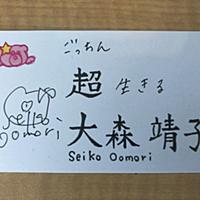 ごっちん
超 生きる
大森靖子
Seiko Oomori
Seiko
Oomori